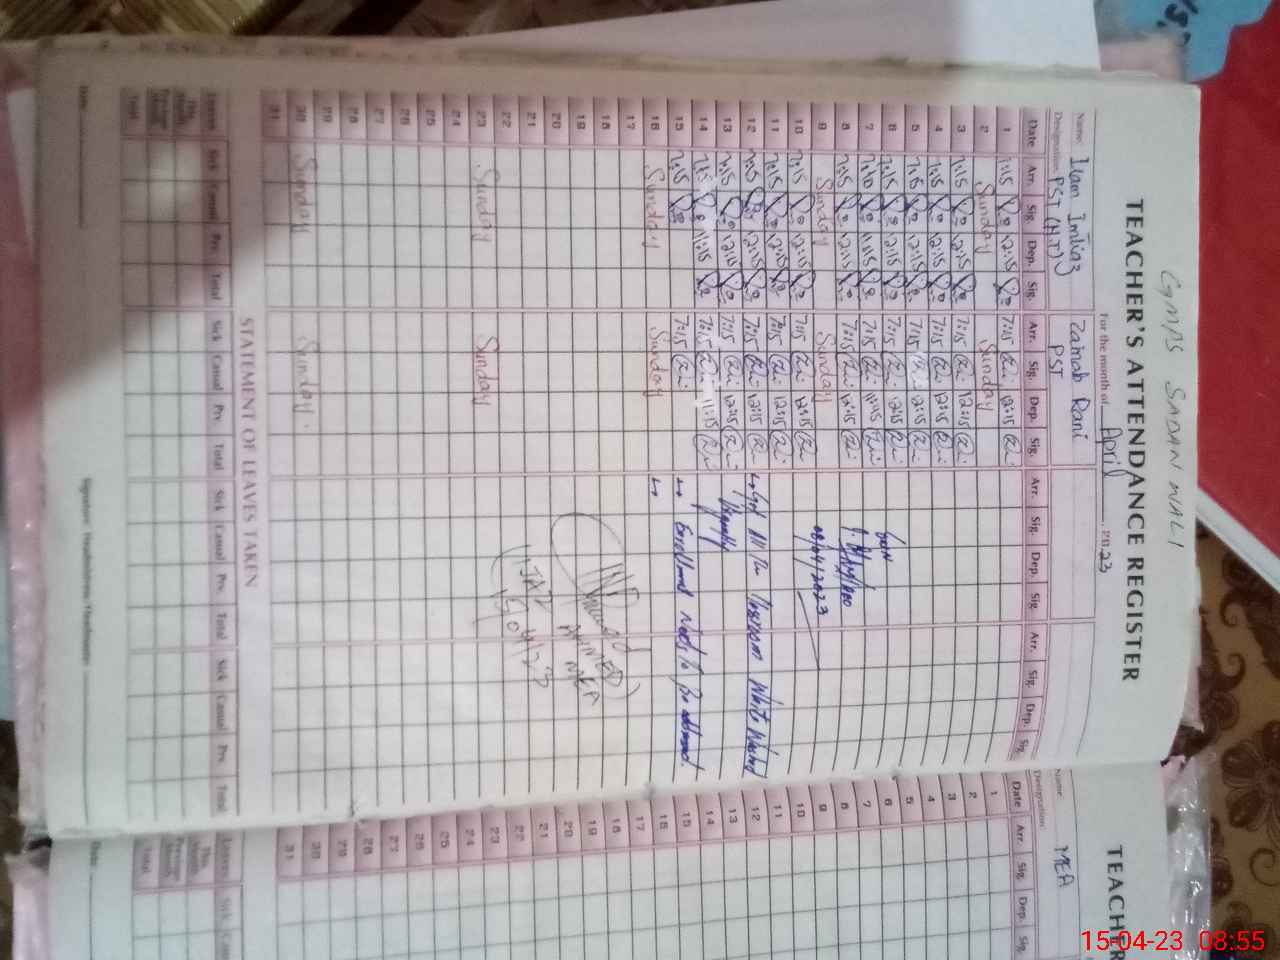 GMPS SADAN WALI
TEACHER'S ATTENDANCE REGISTER
For the month of April 2023
Name: Ilam Imtiaz Zainab Rani
Designation: PST (HT) PST
Date Arr. Sig. Dep. Sig. Arr. Sig. Dep. Sig. Arr. Sig. Dep. Sig. Arr. Sig. Dep. Sig.
1 7:15 12:15 7:15 12:15
2 Sunday Sunday
3 7:15 12:15 7:15 12:15
4 7:15 12:15 7:15 12:15
5 7:15 12:15 7:15 12:15
6 7:15 12:15 7:15 12:15
7 7:10 11:45 7:15 11:45
8 7:15 12:15 7:15 12:15
9 Sunday Sunday
08/04/2023
10 7:15 12:15 7:15 12:15
11 7:15 12:15 7:15 12:15
12 7:15 12:15 7:15 12:15
Got All the White Washed
13 7:15 12:15 7:15 12:15
14 7:15 11:15 7:15 11:15
15 7:15 7:15
Enrollment Needs to be
16 Sunday Sunday
17
18
19
AHMED
MEA
20
21
22
15/04/23
23 Sunday Sunday
24
25
26
27
28
29
30 Sunday Sunday
31
STATEMENT OF LEAVES TAKEN
Leaves Sick Casual Prv. Total Sick Casual Prv. Total Sick Casual Prv. Total Sick Casual Prv. Total
This Month
Previous Month
Total
Date: Signature: Headmistress/Headmaster
TEACHER
Name MEA
Designation
Date Arr. Sig. Dep. Sig.
1
2
3
4
5
6
7
8
9
10
11
12
13
14
15
16
17
18
19
20
21
22
23
24
25
26
27
28
29
30
31
Leaves Sick
This Month
Previous Month
Total
Date:
15-04-23 08:55